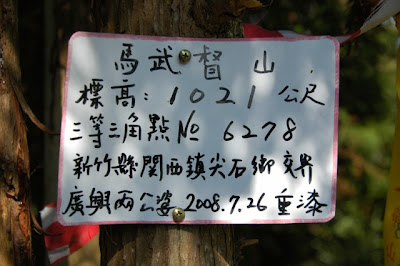 馬武督山
標高：1021公尺
三等三角點№ 6278
新竹縣関西鎮尖石鄉交界
廣興兩公婆 2008.7.26 重漆